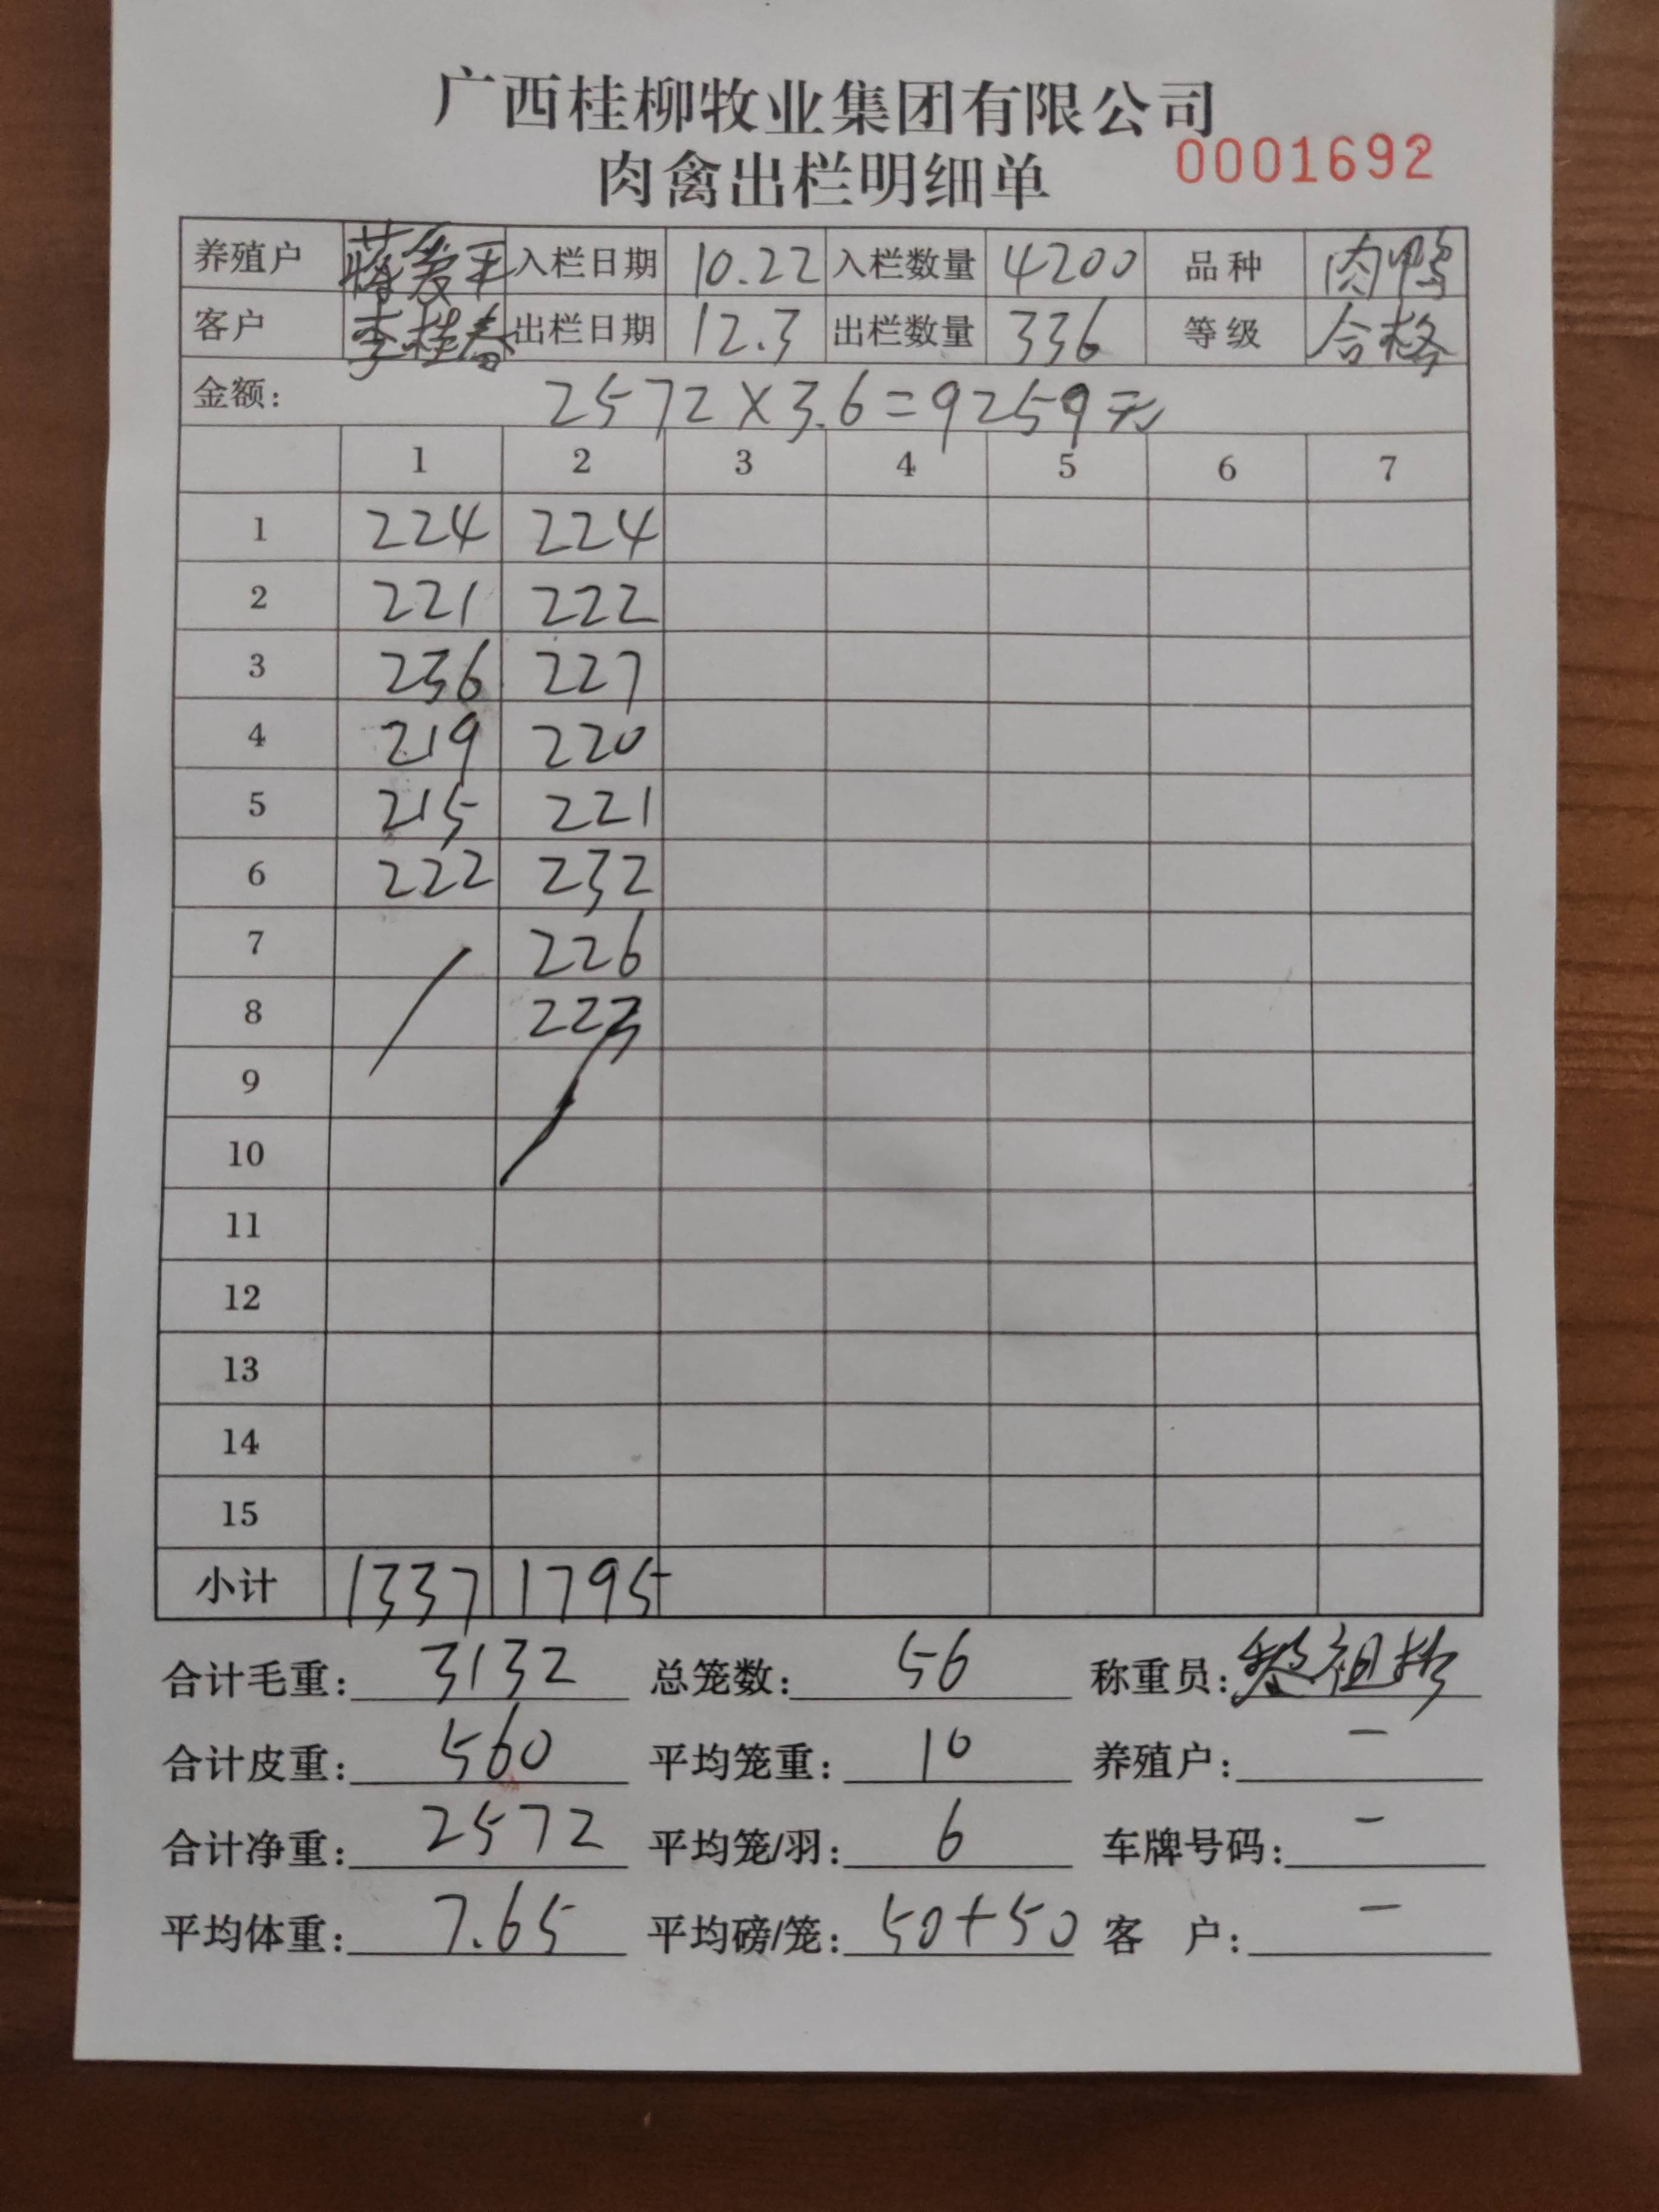 广西桂柳牧业集团有限公司
肉禽出栏明细单 0001692
养殖户 蒋爱平 入栏日期 10.22 入栏数量 4200 品种 肉鸭
客户 李桂春 出栏日期 12.3 出栏数量 336 等级 合格
金额: 2572×3.6=9259元
1 2 3 4 5 6 7
1 224 224
2 221 222
3 236 227
4 219 220
5 215 221
6 222 232
7 226
8 223
9
10
11
12
13
14
15
小计 1337 1795
合计毛重: 3132 总笼数: 56 称重员:
合计皮重: 560 平均笼重: 10 养殖户: —
合计净重: 2572 平均笼/羽: 6 车牌号码: —
平均体重: 7.65 平均磅/笼: 50+50 客 户: —